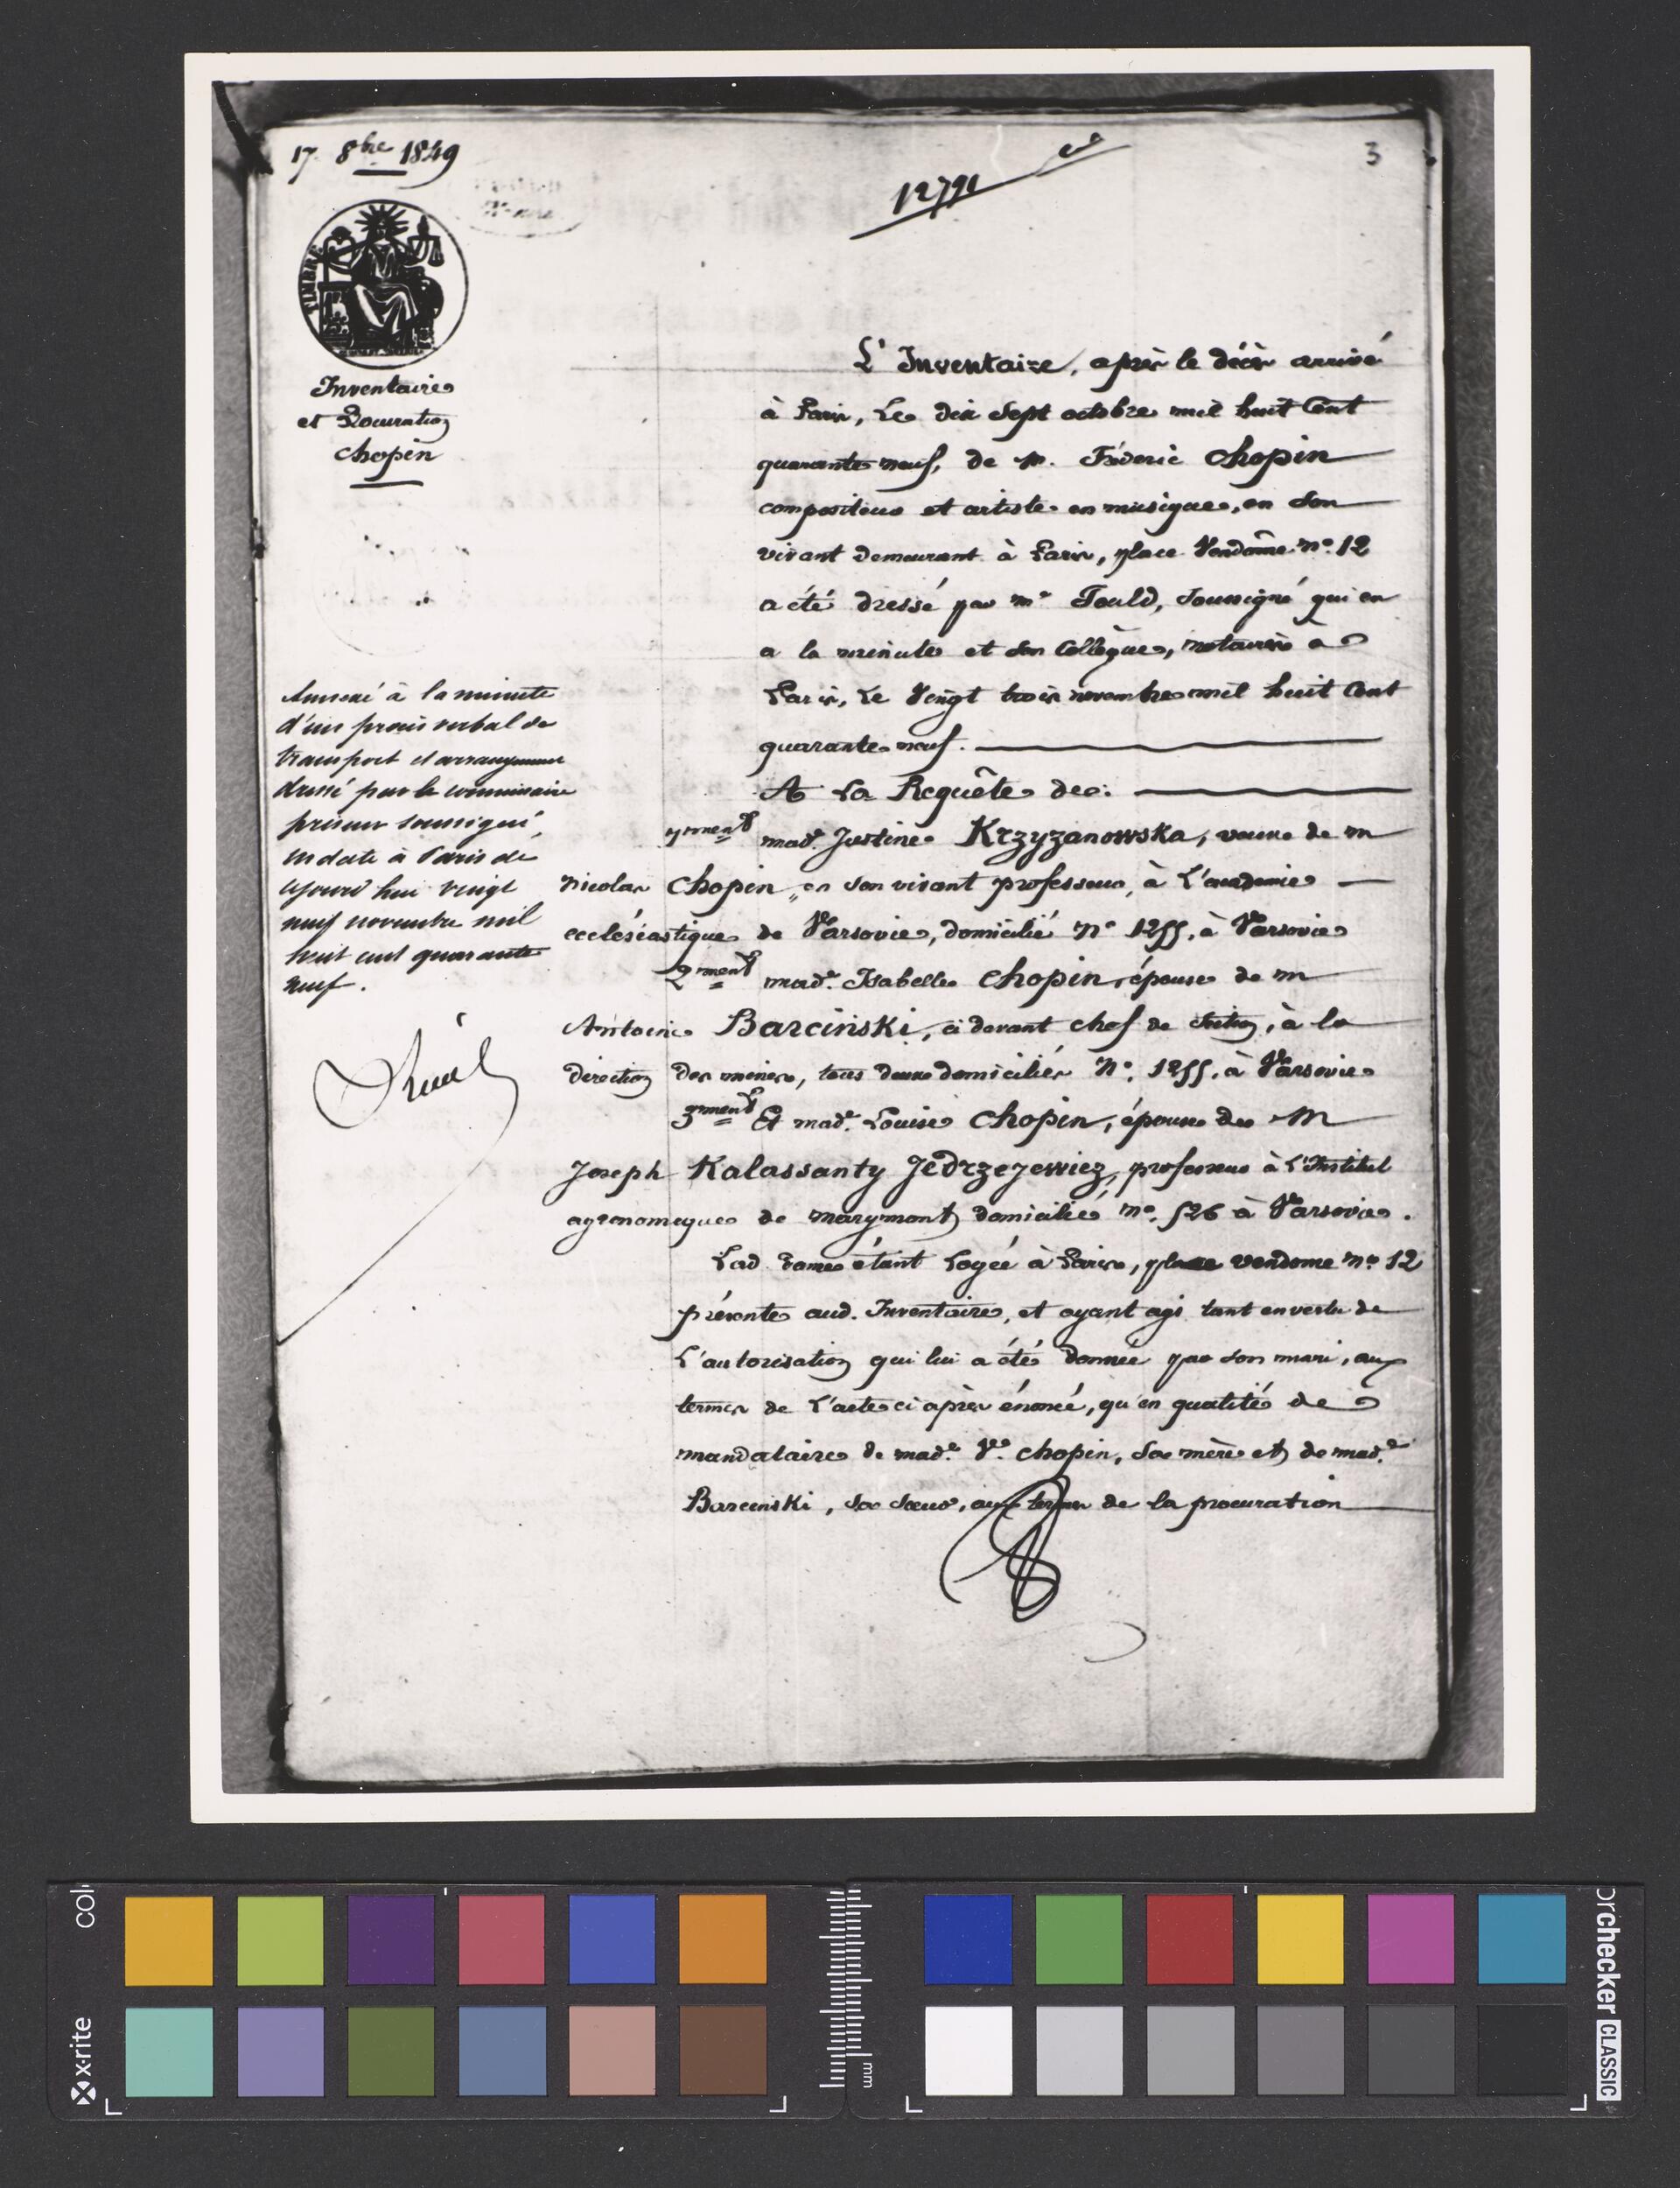 17 8bre 1849
12791
3
TIMBRE
Inventaire
et Procuration
Chopin
L'Inventaire, après le décès arrivé
à Paris, Le dix sept octobre mil huit Cent
quarante neuf, de M. Fréderic Chopin
compositeur et artiste en musique, en son
vivant demeurant à Paris, place Vendôme No. 12
a été dressé par Me Fould, soussigné qui en
a la minute et son Collègue, notaires à
Paris, Le Vingt trois novembre mil huit Cent
quarante neuf.
A La Requête de:
1ment made. Justine Krzyzanowska, veuve de m
Nicolas Chopin, en son vivant professeur, à L'academie
eccleséastique de Varsovie, domicilié No 1255, à Varsovie
2ment made. Isabelle Chopin, épouse de m
Antoine Barcinski, ci devant chef de Section, à la
Direction des mines, tous deux domiciliés No. 1255, à Varsovie
3ment Et made. Louise Chopin, épouse de M
Joseph Kalassanty Jedrzejewiez, professeur à L'Institut
agronomique de Marymont, domicilié No. 526 à Varsovie.
Lad. Dame étant Logée à Paris, place Vendome No 12
présente aud. Inventaire, et ayant agi tant en vertu de
L'autorisation qui lui a été donnée par son mari, aux
termes de L'acte ci après énoncé, qu'en qualité de
mandataire de made. Ve. Chopin, Sa mère et de made.
Barcinski, sa soeur, aux termes de la procuration
Annexé à la minute
d'un procès verbal de
transport et arrangement
dressé par le commissaire
priseur soussigné,
en date à Paris de
ajourd'hui vingt
neuf novembre mil
huit cent quarante
neuf.
x-rite
col
mm
orchecker CLASSIC